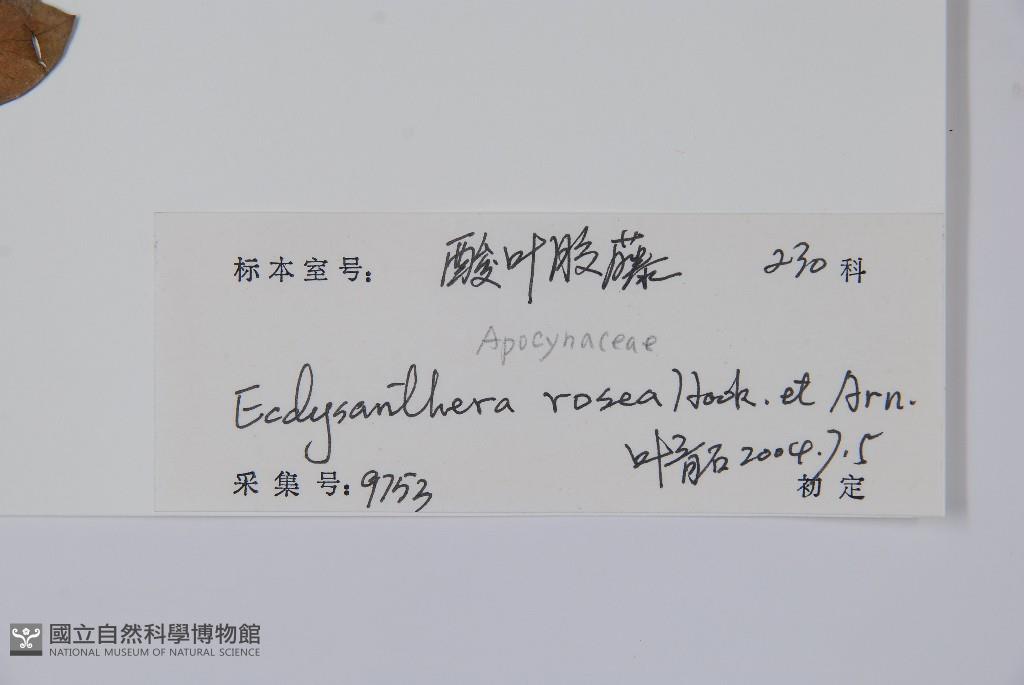 标本室号: 酸叶胶藤 230科
Apocynaceae
Ecdysanthera rosea Hook. et Arn.
叶育石 2004.7.5
采集号: 9753 初定
國立自然科學博物館
NATIONAL MUSEUM OF NATURAL SCIENCE